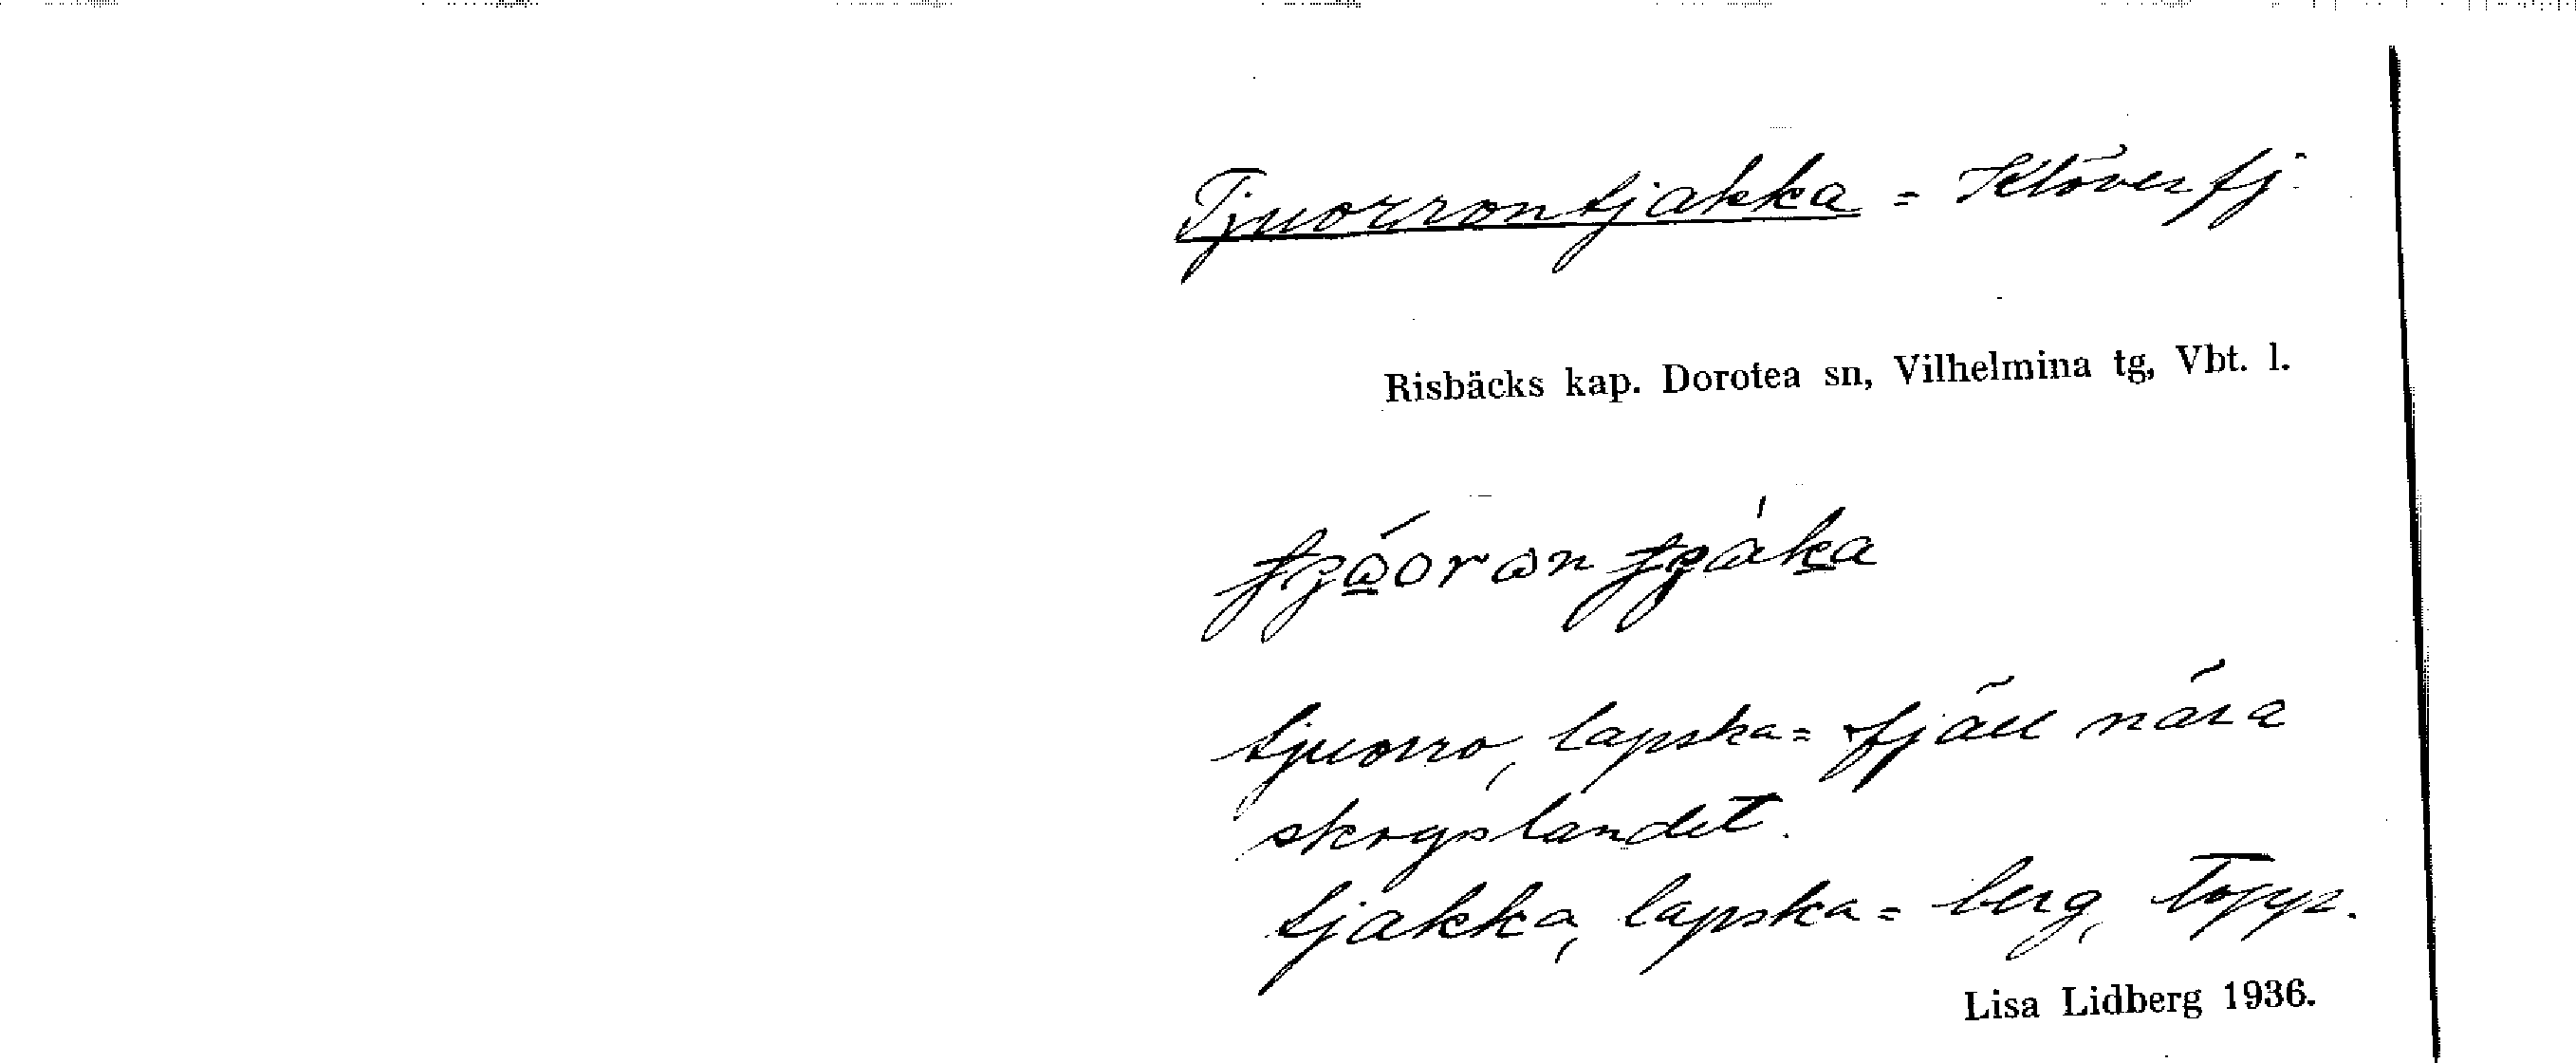 Tjuorrontjakka = Klöverfj.
Risbäcks kap. Dorotea sn, Vilhelmina tg, Vbt. l.
tjuorro, lapska = fjäll nära
skogslandet.
tjakka, lapska = berg, topp.
Lisa Lidberg 1936.